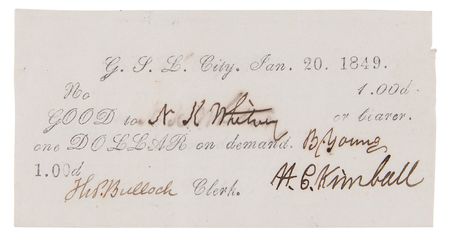 G. S. L. City. Jan. 20. 1849.
No 1.00d.
GOOD to N. K Whitney or bearer.
one DOLLAR on demand. B. Young
1.00d H. C. Kimball
Tho.s Bullock Clerk.